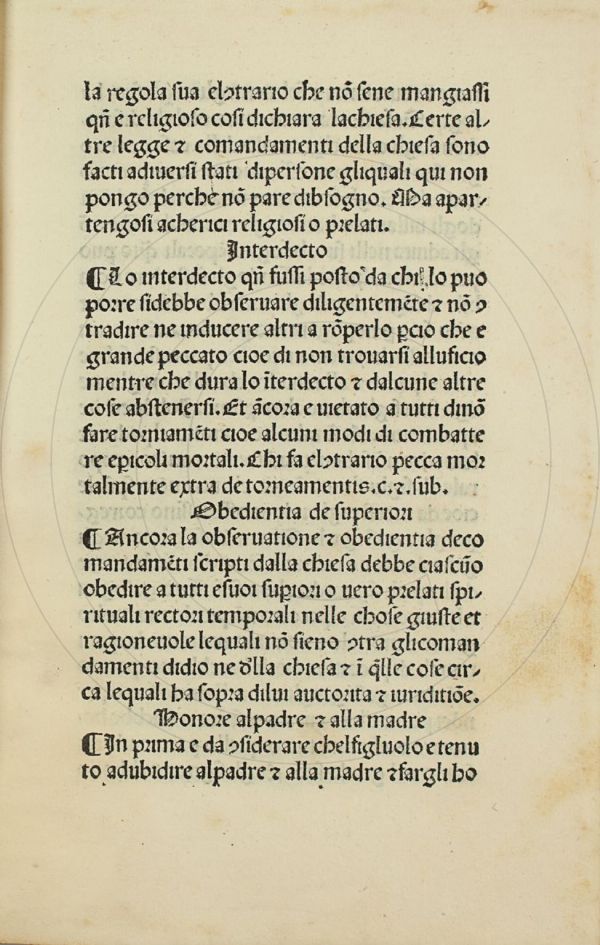 la regola sua elꝯtrario che nõ sene mangiassi
qñ e religioso cosi dichiara lachiesa. Certe al⸗
tre legge ⁊ comandamenti della chiesa sono
facti adiuersi stati dipersone gliquali qui non
pongo perche nõ pare dibsogno. Ma apar⸗
tengosi acherici religiosi o prelati.
Interdecto
¶ Lo interdecto qñ fussi posto da chi lo puo
porre sidebbe obseruare diligentemẽte ⁊ nõ ꝯ
tradire ne inducere altri a rõperlo ꝑcio che e
grande peccato cioe di non trouarsi alluficio
mentre che dura lo ĩterdecto ⁊ dalcune altre
cose abstenersi. Et ãcora e uietato a tutti dinõ
fare torniamẽti cioe alcuni modi di combatte
re eꝑicoli mortali. Chi fa elꝯtrario pecca mor
talmente extra de torneamentis. c. ⁊. sub.
Obedientia de superiori
¶ Ancora la obseruatione ⁊ obedientia deco
mandamẽti scripti dalla chiesa debbe ciascũo
obedire a tutti esuoi suꝑiori o uero prelati spi⸗
rituali rectori temporali nelle chose giuste et
ragioneuole lequali nõ sieno ꝯtra glicoman
damenti didio ne d̃lla chiesa ⁊ ĩ q̃lle cose cir⸗
ca lequali ha sopra dilui auctorita ⁊ iuriditiõe.
Honore alpadre ⁊ alla madre
¶ In prima e da ꝯsiderare chelfigluolo e tenu
to adubidire alpadre ⁊ alla madre ⁊fargli ho